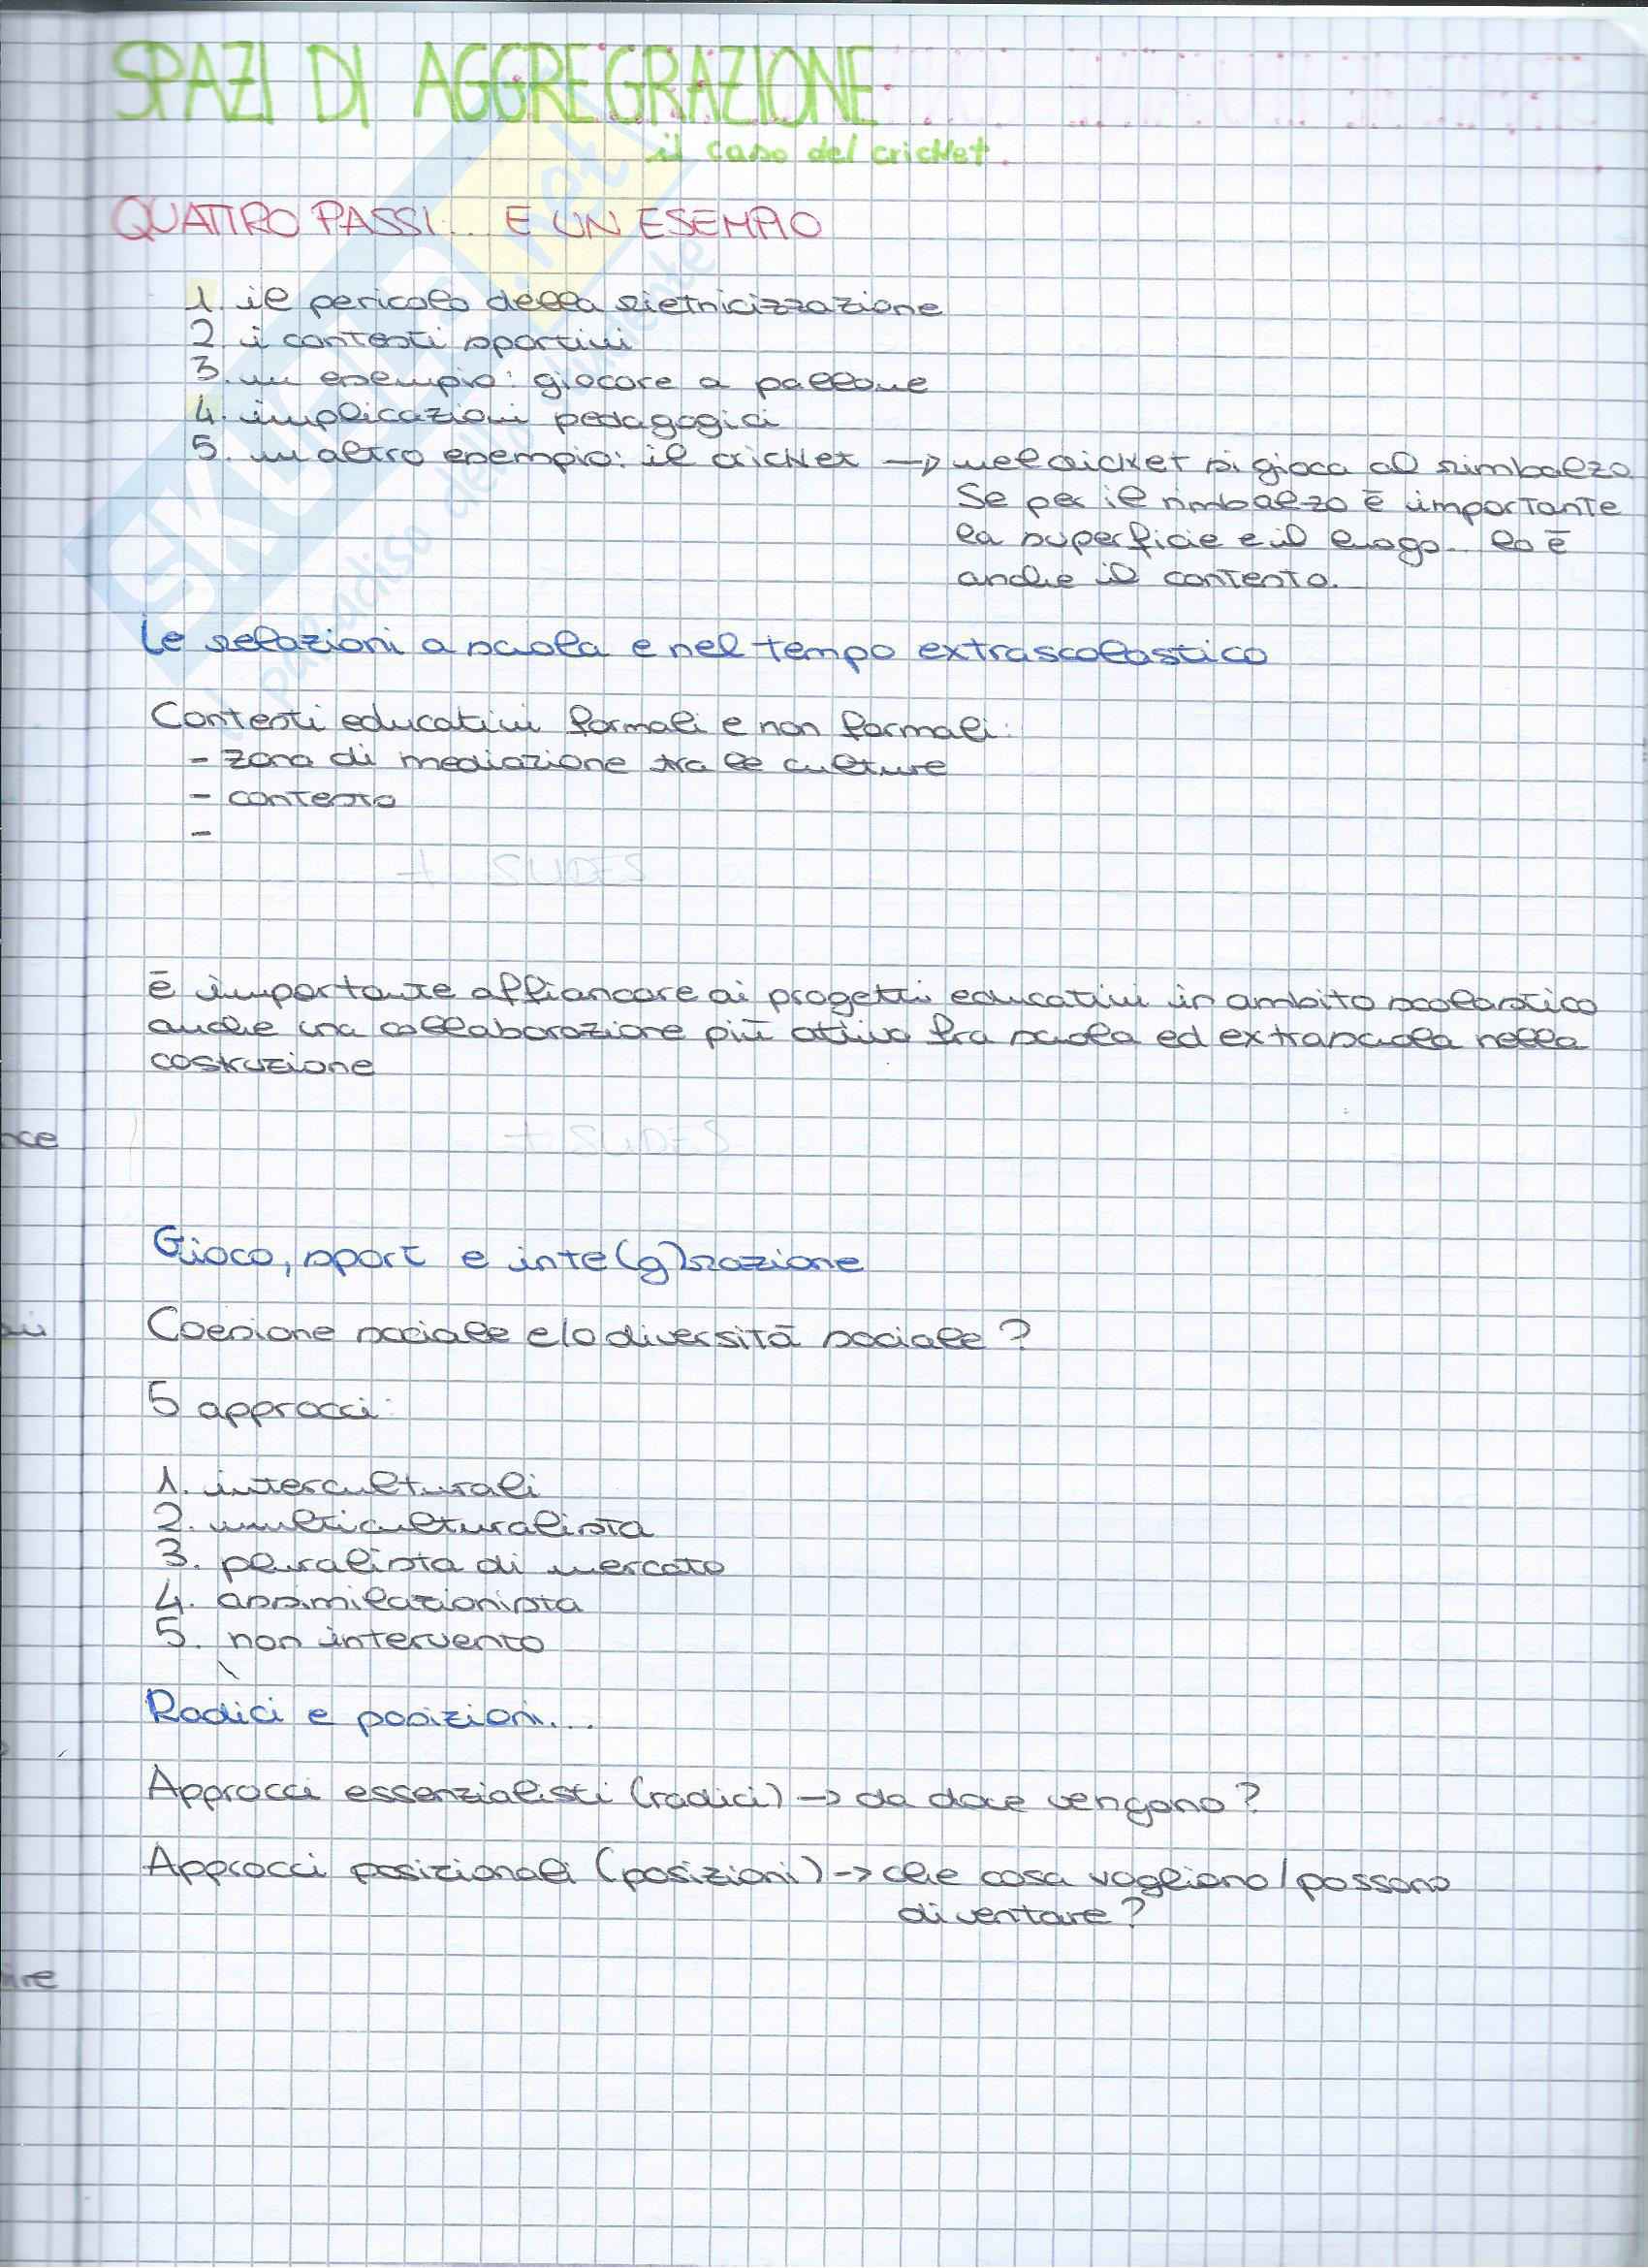 SPAZI DI AGGREGRAZIONE
il caso del cricket.
QUATTRO PASSI... E UN ESEMPIO
1. il pericolo della rietnicizzazione
2. i contesti sportivi
3. un esempio: giocare a pallone
4. implicazioni pedagogici
5. un altro esempio: il cricket → nel cricket si gioca al rimbalzo
Se per il rimbalzo è importante
la superficie e il luogo... lo è
anche il contesto.
Le relazioni a scuola e nel tempo extrascolastico
Contesti educativi formali e non formali:
- zona di mediazione tra le culture
- contesto
-
+ SLIDES
è importante affiancare ai progetti educativi in ambito scolastico
anche una collaborazione più attiva fra scuola ed extrascuola nella
costruzione
nce
+ SLIDES
Gioco, sport e inte(g)razione
Coesione sociale e/o diversità sociale?
5 approcci:
1. interculturali
2. multiculturalista
3. pluralista di mercato
4. assimilazionista
5. non intervento
Radici e posizioni...
Approcci essenzialisti (radici) → da dove vengono?
Approcci posizionali (posizioni) → che cosa vogliono/possono
diventare?
SKUOLA.net
il paradiso dello studente